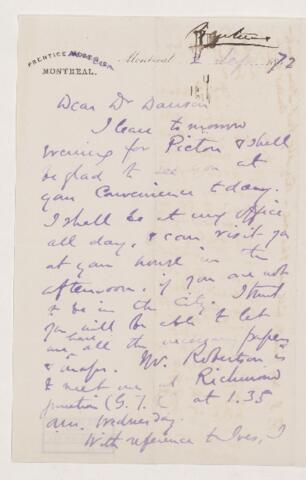 PRENTICE
MONTREAL.
Montreal 1872
Dear Dr Dawson
I leave tomorrow
evening for Picton & shall
be glad to see you at
your convenience today.
I shall be at my office
all day, & can visit you
at your house in the
afternoon, if you are not
to be in the city. I trust
you will be able to let
me have all the necessary papers
& maps. Mr. Robertson is
to meet me at Richmond
Junction (G. T. at 1.35
a.m. Wednesday.
With reference to Ives, I